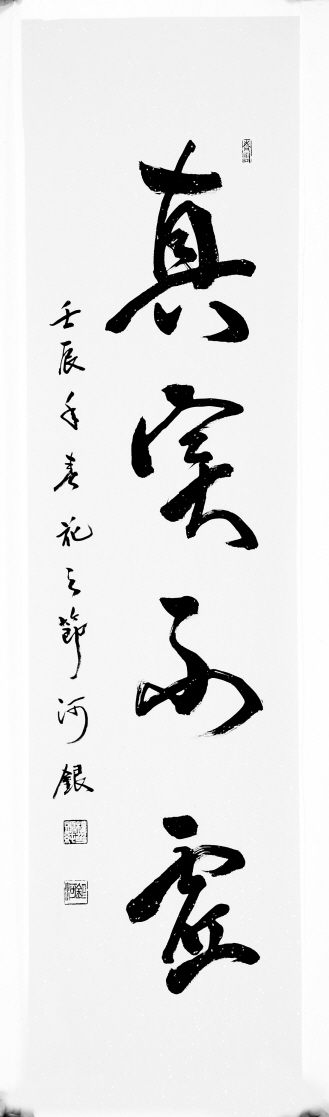 真实不虚
壬辰年春花之節 河銀